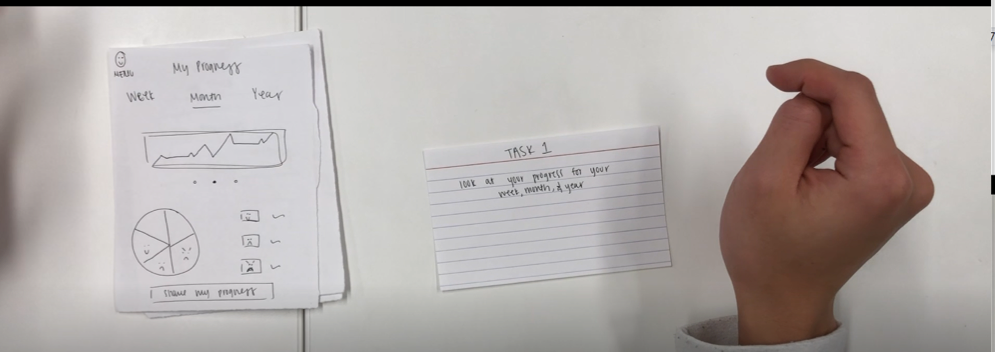 MENU
My Progress
Week Month Year
share my progress
TASK 1
look at your progress for your
week, month, & year
7